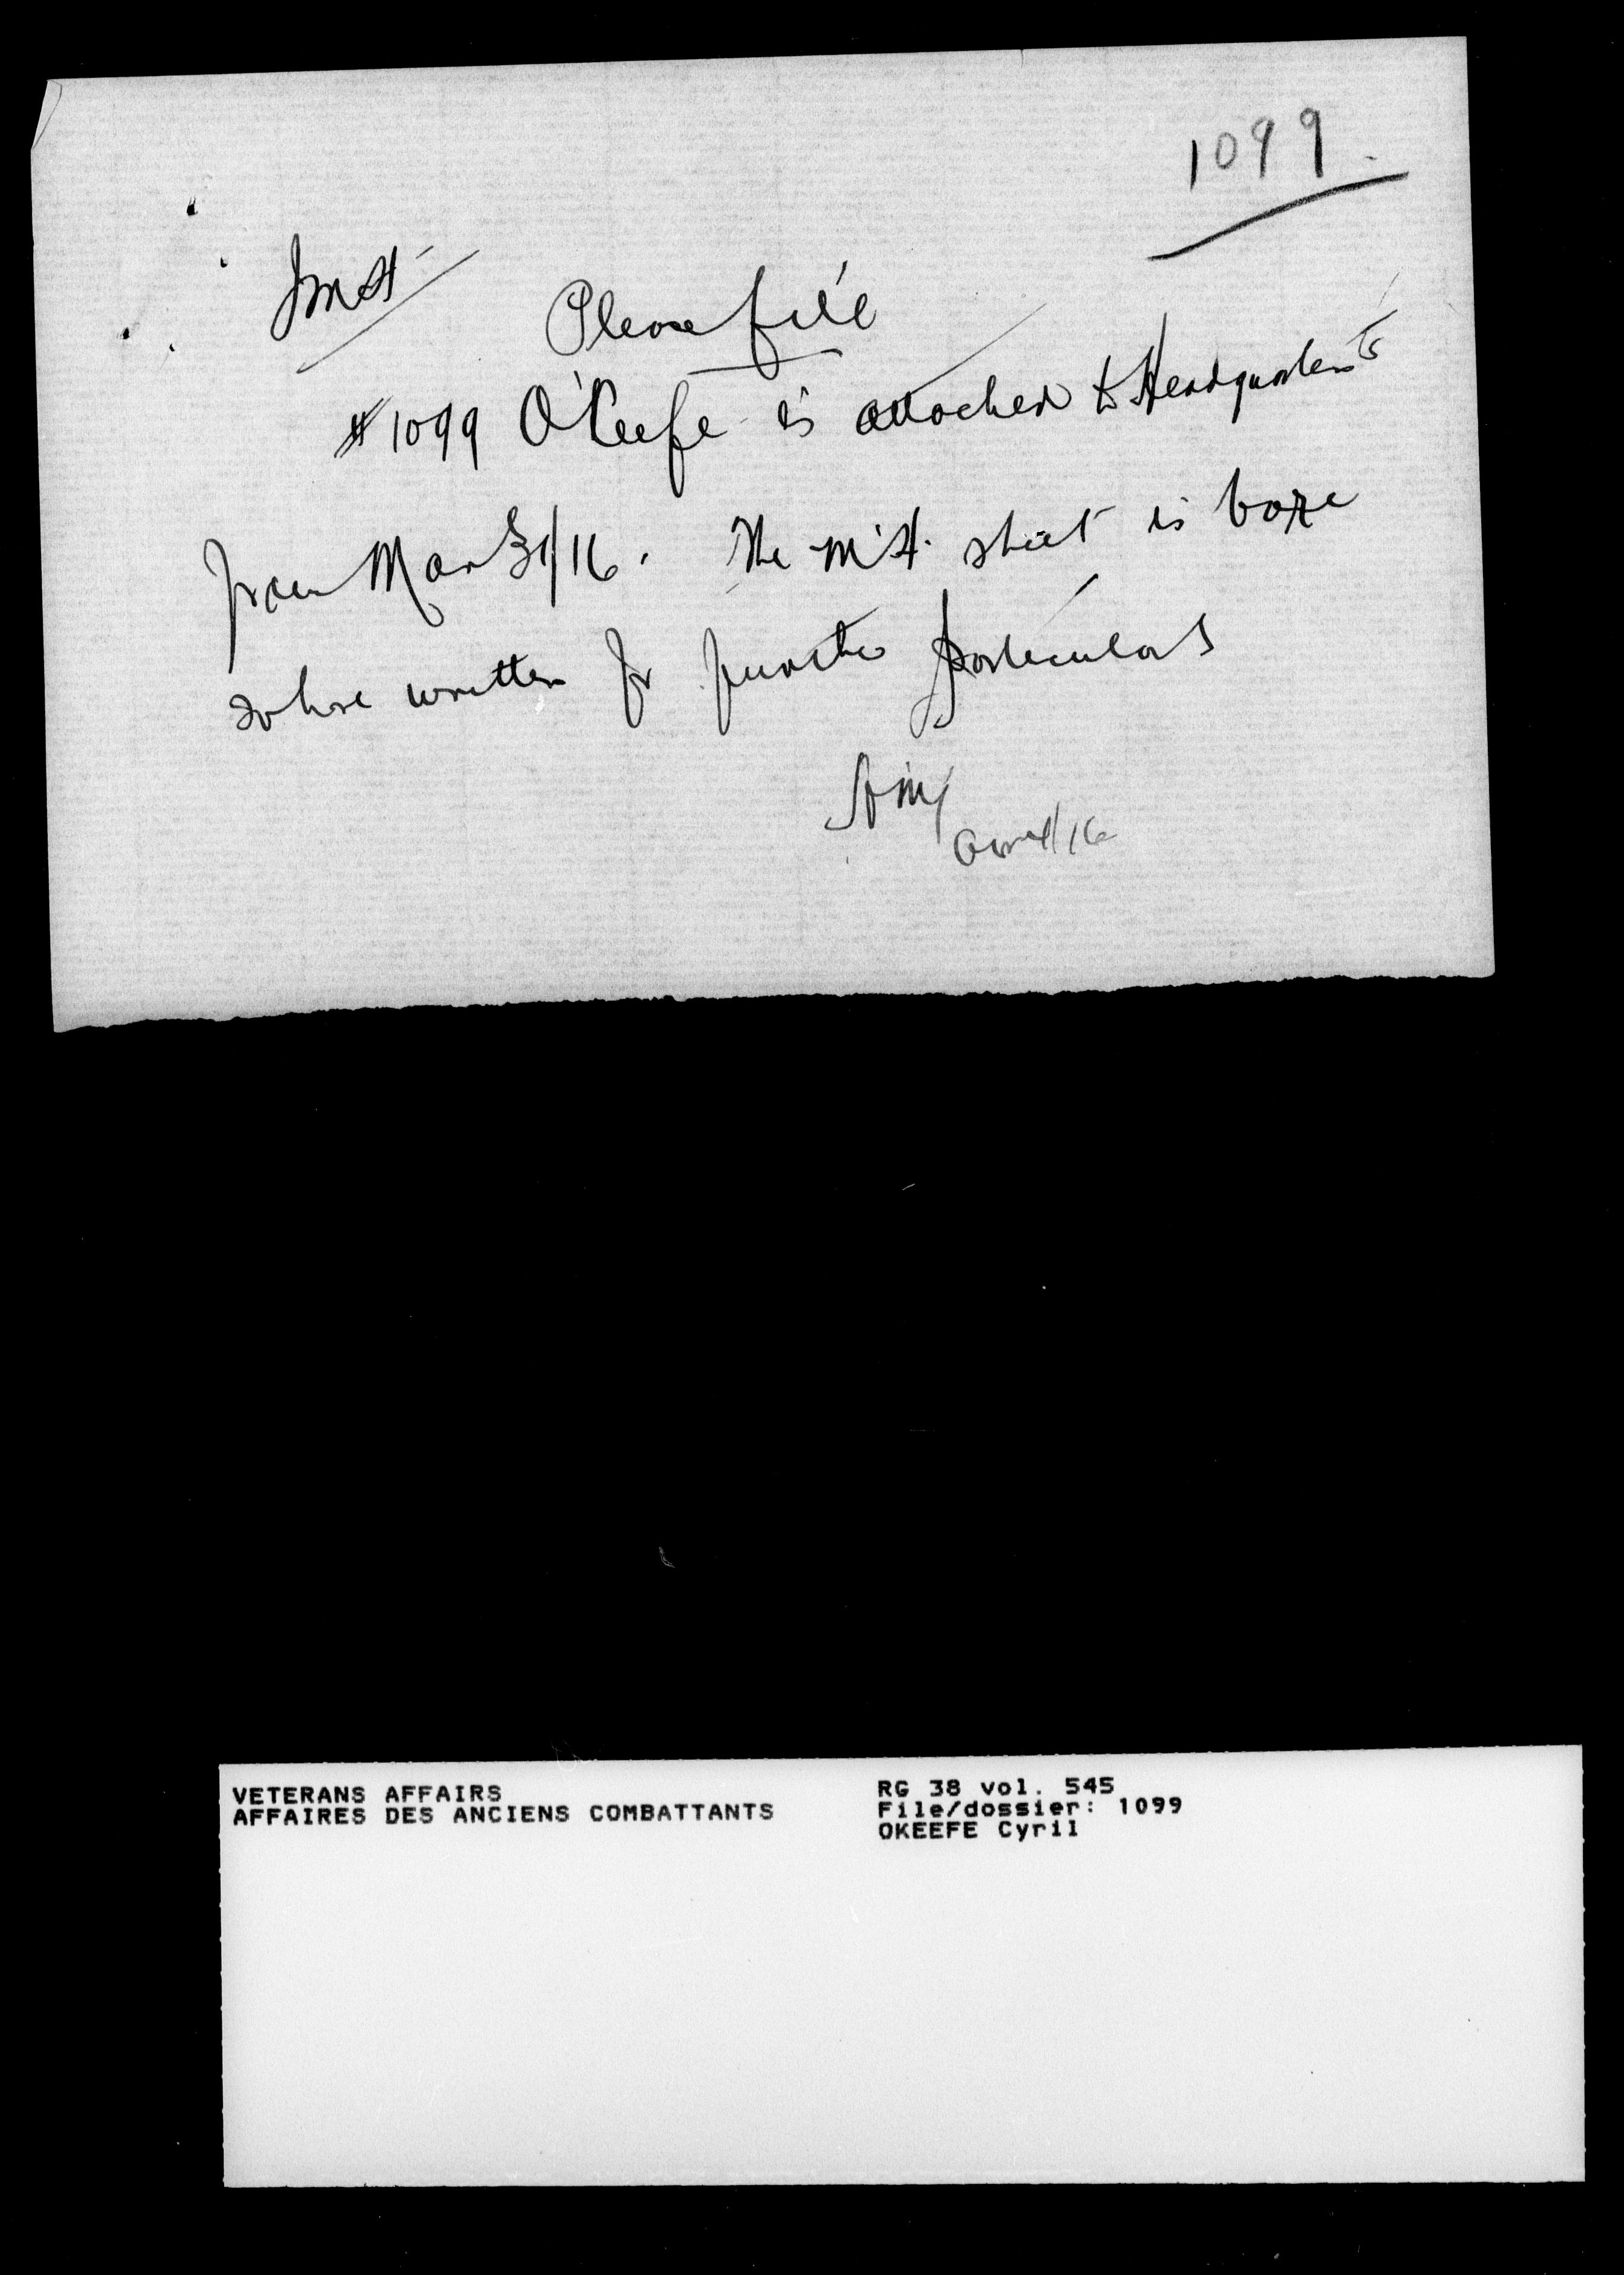 1099
Please file
#1099 O'Keefe is attached to Headquarters
from Mar 31/16. The M.H. sheet is bare
so have written for further particulars
VETERANS AFFAIRS
AFFAIRES DES ANCIENS COMBATTANTS
RG 38 vol. 545
File/dossier: 1099
OKEEFE Cyril